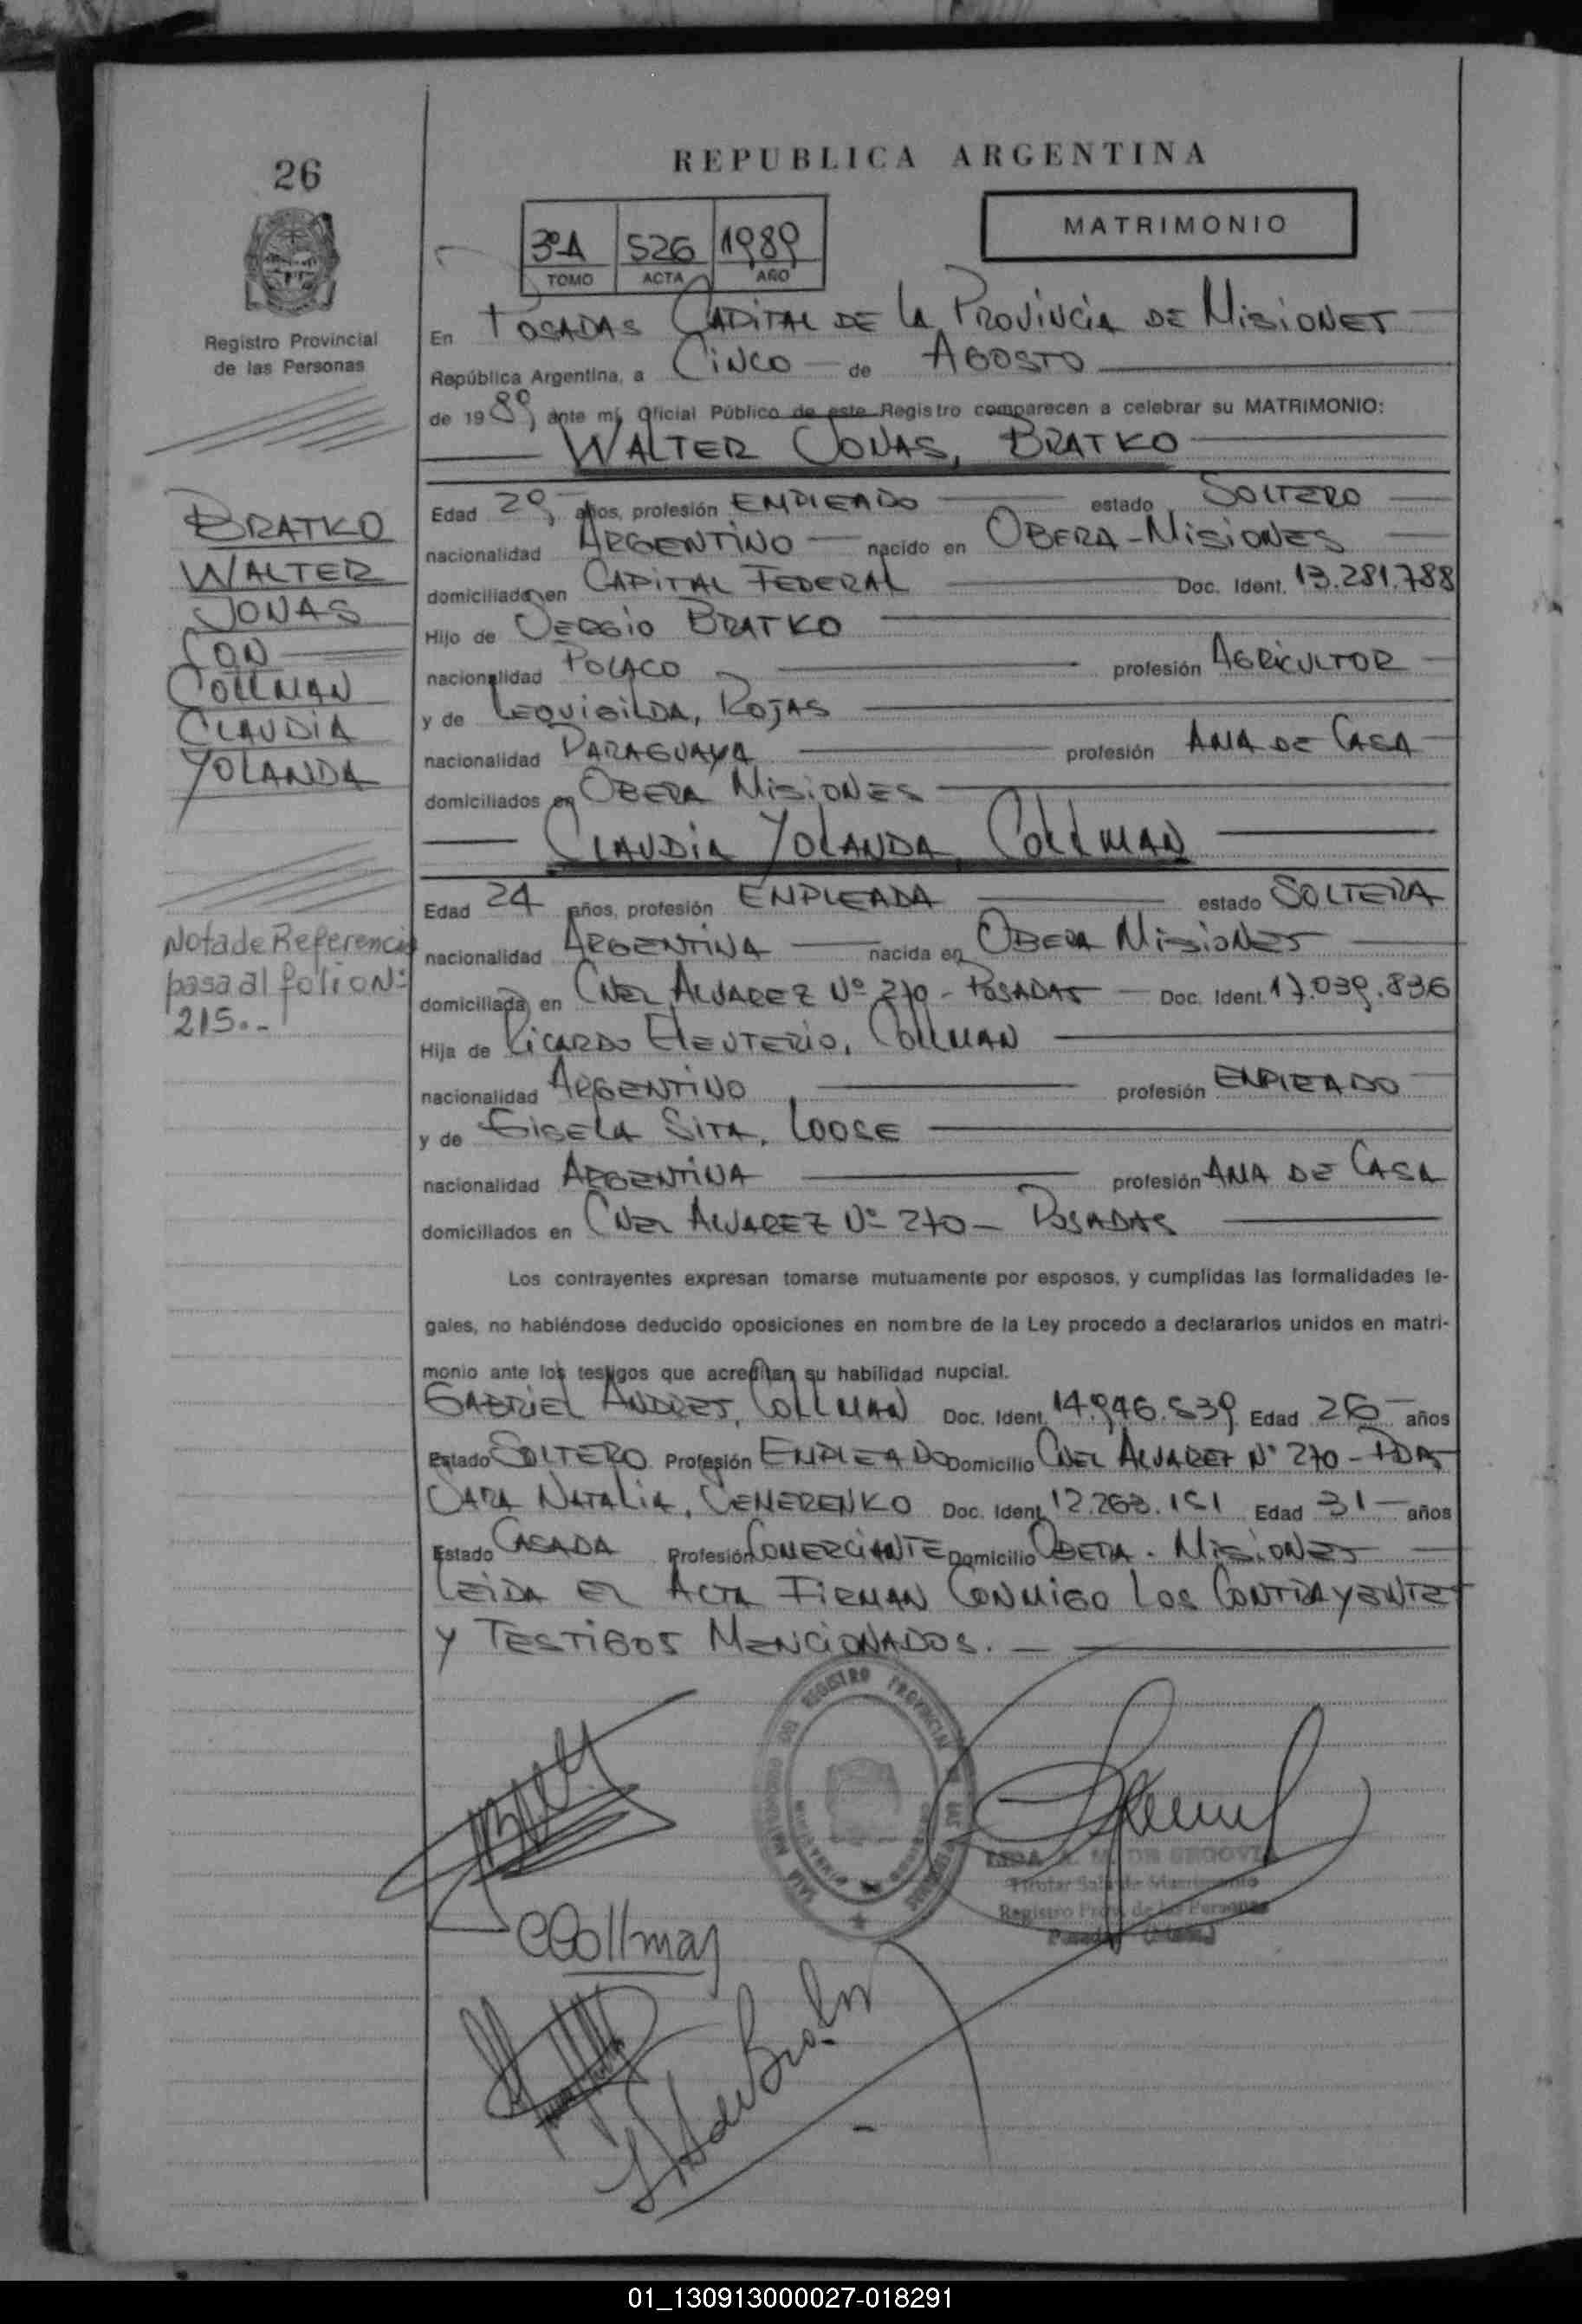 REPUBLICA ARGENTINA
26
MATRIMONIO
3º A 526 1989
TOMO ACTA AÑO
Registro Provincial
de las Personas
En POSADAS CAPITAL DE LA PROVINCIA DE MISIONES
República Argentina, a CINCO de AGOSTO
de 1989, ante mí, Oficial Público de este Registro comparecen a celebrar su MATRIMONIO:
WALTER JONAS, BRATKO
Edad 29 años, profesión EMPLEADO estado SOLTERO
nacionalidad ARGENTINO nacido en OBERA - MISIONES
domiciliado en CAPITAL FEDERAL Doc. Ident. 13.281.788
Hijo de SERGIO BRATKO
nacionalidad POLACO profesión AGRICULTOR
y de LEOVIGILDA, ROJAS
nacionalidad PARAGUAYA profesión AMA DE CASA
domiciliados en OBERA MISIONES
CLAUDIA YOLANDA, COLLMAN
Edad 24 años, profesión EMPLEADA estado SOLTERA
nacionalidad ARGENTINA nacida en OBERA MISIONES
domiciliada en CNEL ALVAREZ Nº 270 - POSADAS Doc. Ident. 17.039.836
Hija de RICARDO ELEUTERIO, COLLMAN
nacionalidad ARGENTINO profesión EMPLEADO
y de GISELA SITA, LOOSE
nacionalidad ARGENTINA profesión AMA DE CASA
domiciliados en CNEL ALVAREZ Nº 270 - POSADAS
Los contrayentes expresan tomarse mutuamente por esposos, y cumplidas las formalidades le-
gales, no habiéndose deducido oposiciones en nombre de la Ley procedo a declararlos unidos en matri-
monio ante los testigos que acreditan su habilidad nupcial.
GABRIEL ANDRES, COLLMAN Doc. Ident. 14.946.539 Edad 26 años
Estado SOLTERO Profesión EMPLEADO Domicilio CNEL ALVAREZ Nº 270 - PDAS
SARA NATALIA, SEMERENKO Doc. Ident. 12.263.151 Edad 31 años
Estado CASADA Profesión COMERCIANTE Domicilio OBERA - MISIONES
LEIDA EL ACTA FIRMAN CONMIGO LOS CONTRAYENTES
Y TESTIGOS MENCIONADOS.
BRATKO
WALTER
JONAS
CON
COLLMAN
CLAUDIA
YOLANDA
Nota de Referencia
pasa al folio Nº
215.-
REGISTRO PROVINCIAL DE LAS PERSONAS
DE SEGOVIA
Titular Sala de Matrimonio
Registro Prov. de las Personas
CCollman
01_130913000027-018291